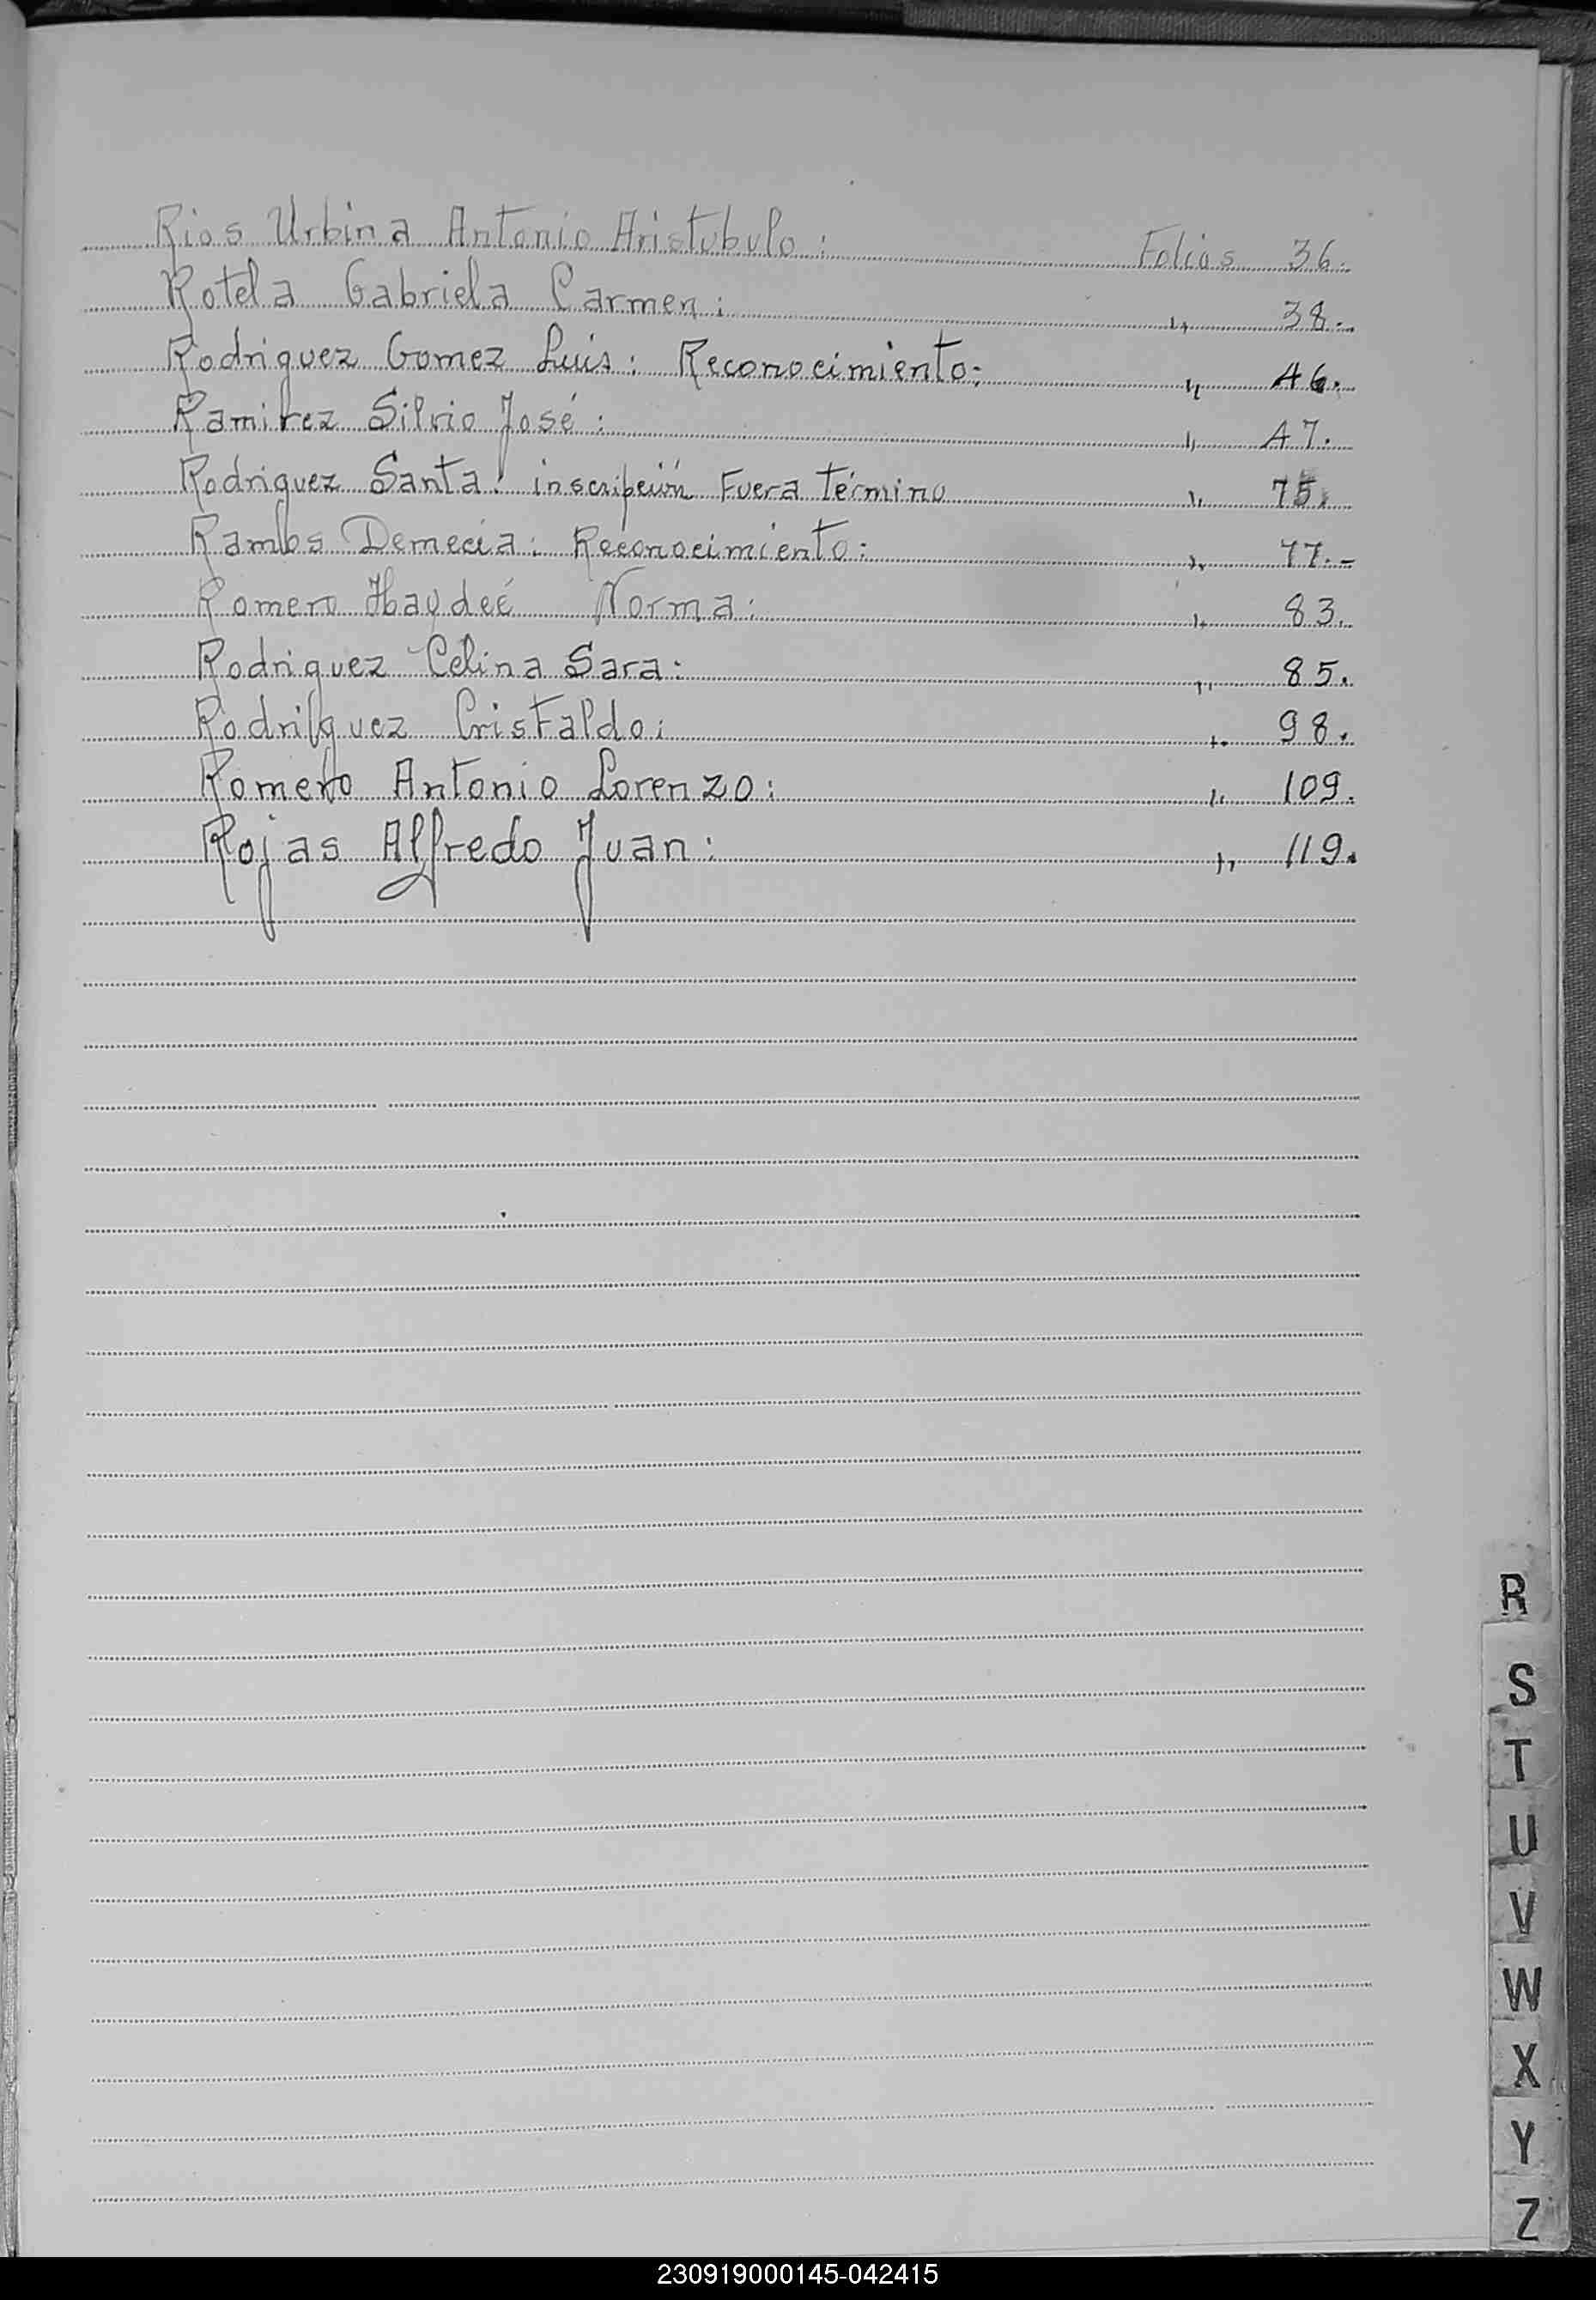 Rios Urbina Antonio Aristubulo: Folios 36.
Rotela Gabriela Carmen: " 38.
Rodriguez Gomez Luis: Reconocimiento: " 46.
Ramirez Silvio José: " 47.
Rodriguez Santa: inscripción Fuera término " 75.
Ramos Demecia: Reconocimiento: " 77.-
Romero Haydeé Norma: " 83.
Rodriguez Celina Sara: " 85.
Rodriguez Cristaldo: " 98.
Romero Antonio Lorenzo: " 109.
Rojas Alfredo Juan: " 119.
R
S
T
U
V
W
X
Y
Z
230919000145-042415